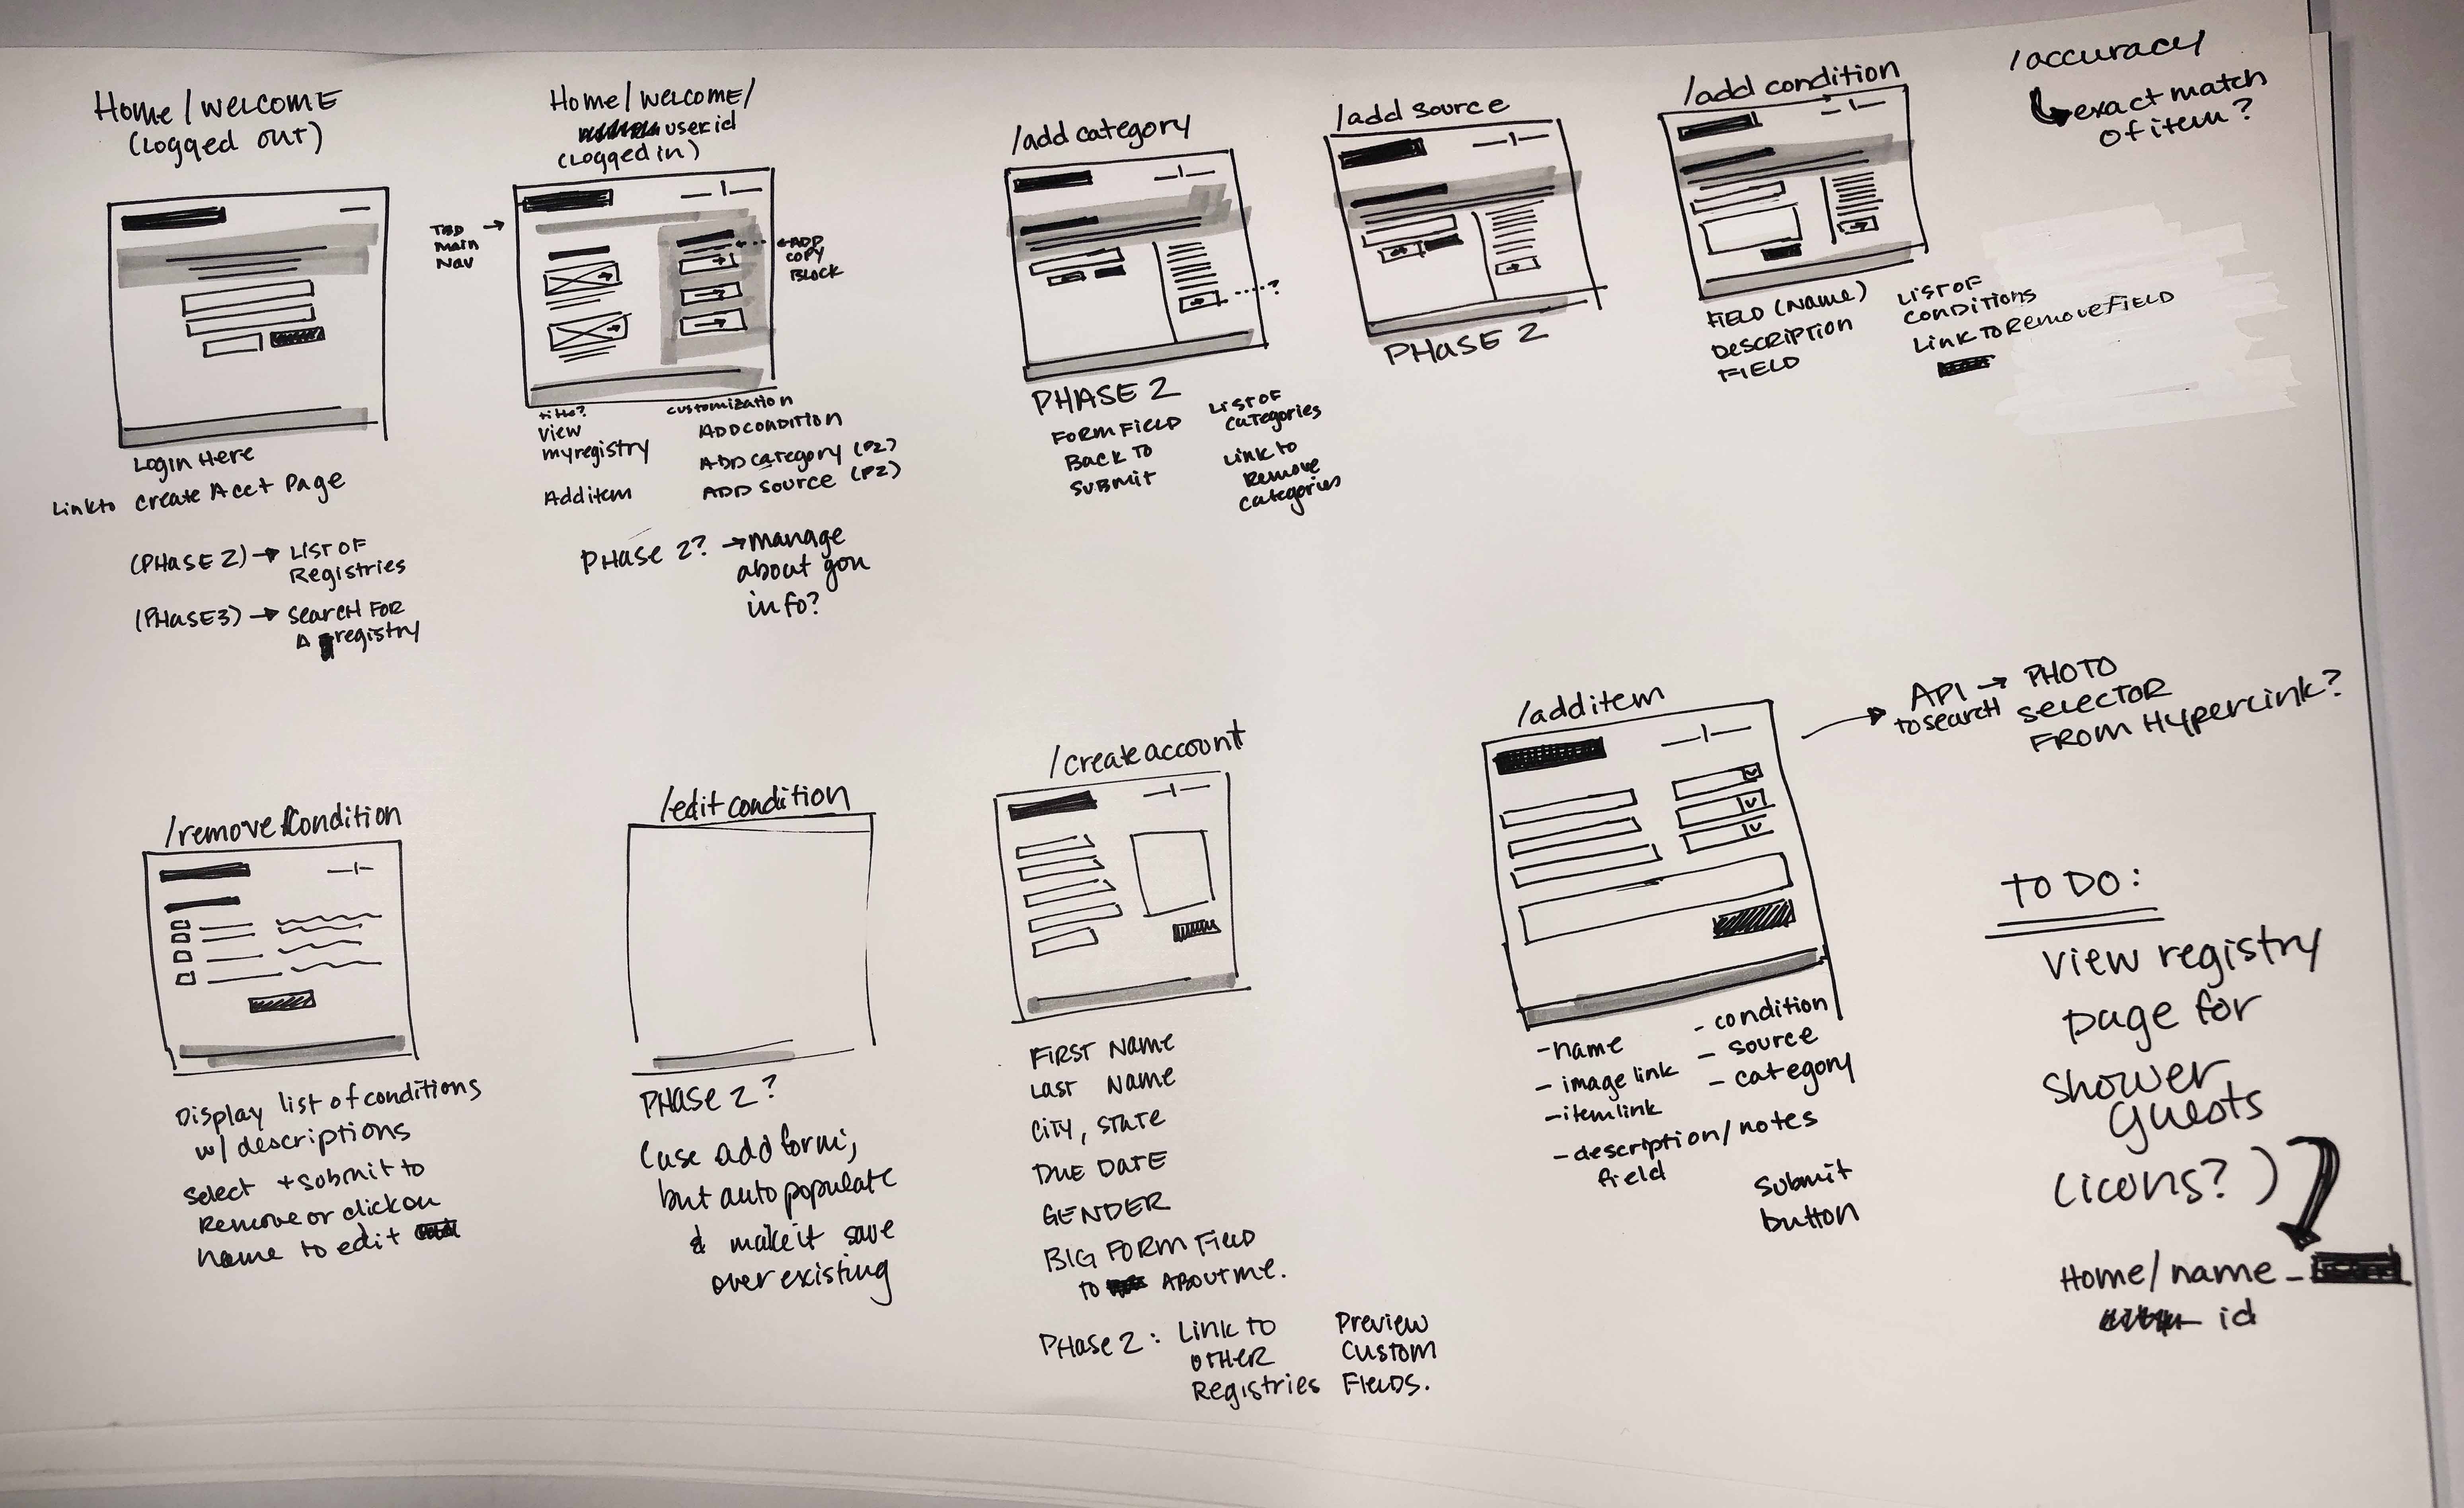 Home/WELCOME
(Logged out)
Login Here
Link to Create Acct Page
(PHASE 2) → LIST OF
Registries
(PHASE 3) → Search FOR
A registry
Home/WELCOME/
userid
(Logged in)
TBD
Main
Nav
←ADD
COPY
BLOCK
title?
View
my registry
Add item
customization
ADD CONDITION
ADD Category (P2)
ADD Source (P2)
PHASE 2? → Manage
about you
info?
/add category
?
PHASE 2
FORM FIELD
Back to
Submit
LIST OF
Categories
Link to
Remove
Categories
/add source
PHASE 2
/add condition
FIELD (Name)
Description
FIELD
LIST OF
Conditions
Link to Remove FIELD
/accuracy
exact match
of item?
/remove condition
Display list of conditions
w/ descriptions
Select + submit to
Remove or click on
name to edit
/edit condition
PHASE 2?
(use add form;
but auto populate
& make it save
over existing
/create account
FIRST Name
Last Name
City, State
Due Date
GENDER
BIG FORM FIELD
to ABOUT ME.
PHASE 2: Link to
OTHER
Registries
Preview
Custom
FIELDS.
/add item
API → PHOTO
to search SELECTOR
FROM Hyperlink?
- name
- image link
- item link
- description/notes
field
- condition
- source
- category
Submit
button
TO DO:
View registry
page for
Shower
Guests
(icons?)
Home/name_
id